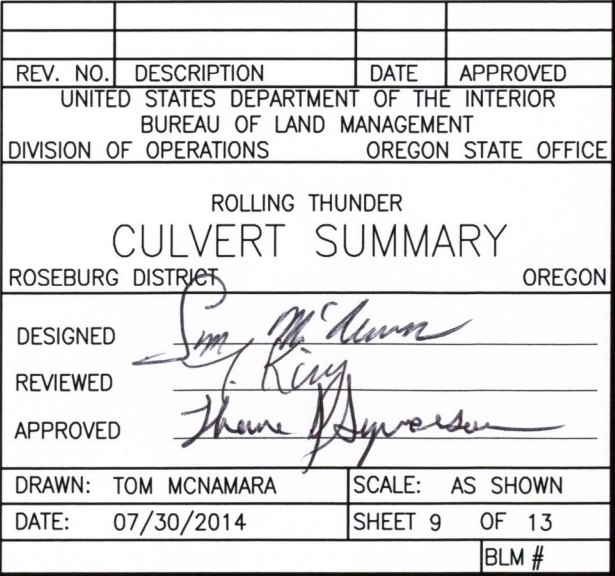 REV. NO. DESCRIPTION DATE APPROVED
UNITED STATES DEPARTMENT OF THE INTERIOR
BUREAU OF LAND MANAGEMENT
DIVISION OF OPERATIONS OREGON STATE OFFICE
ROLLING THUNDER
CULVERT SUMMARY
ROSEBURG DISTRICT OREGON
DESIGNED
REVIEWED King
APPROVED
DRAWN: TOM MCNAMARA SCALE: AS SHOWN
DATE: 07/30/2014 SHEET 9 OF 13
BLM #